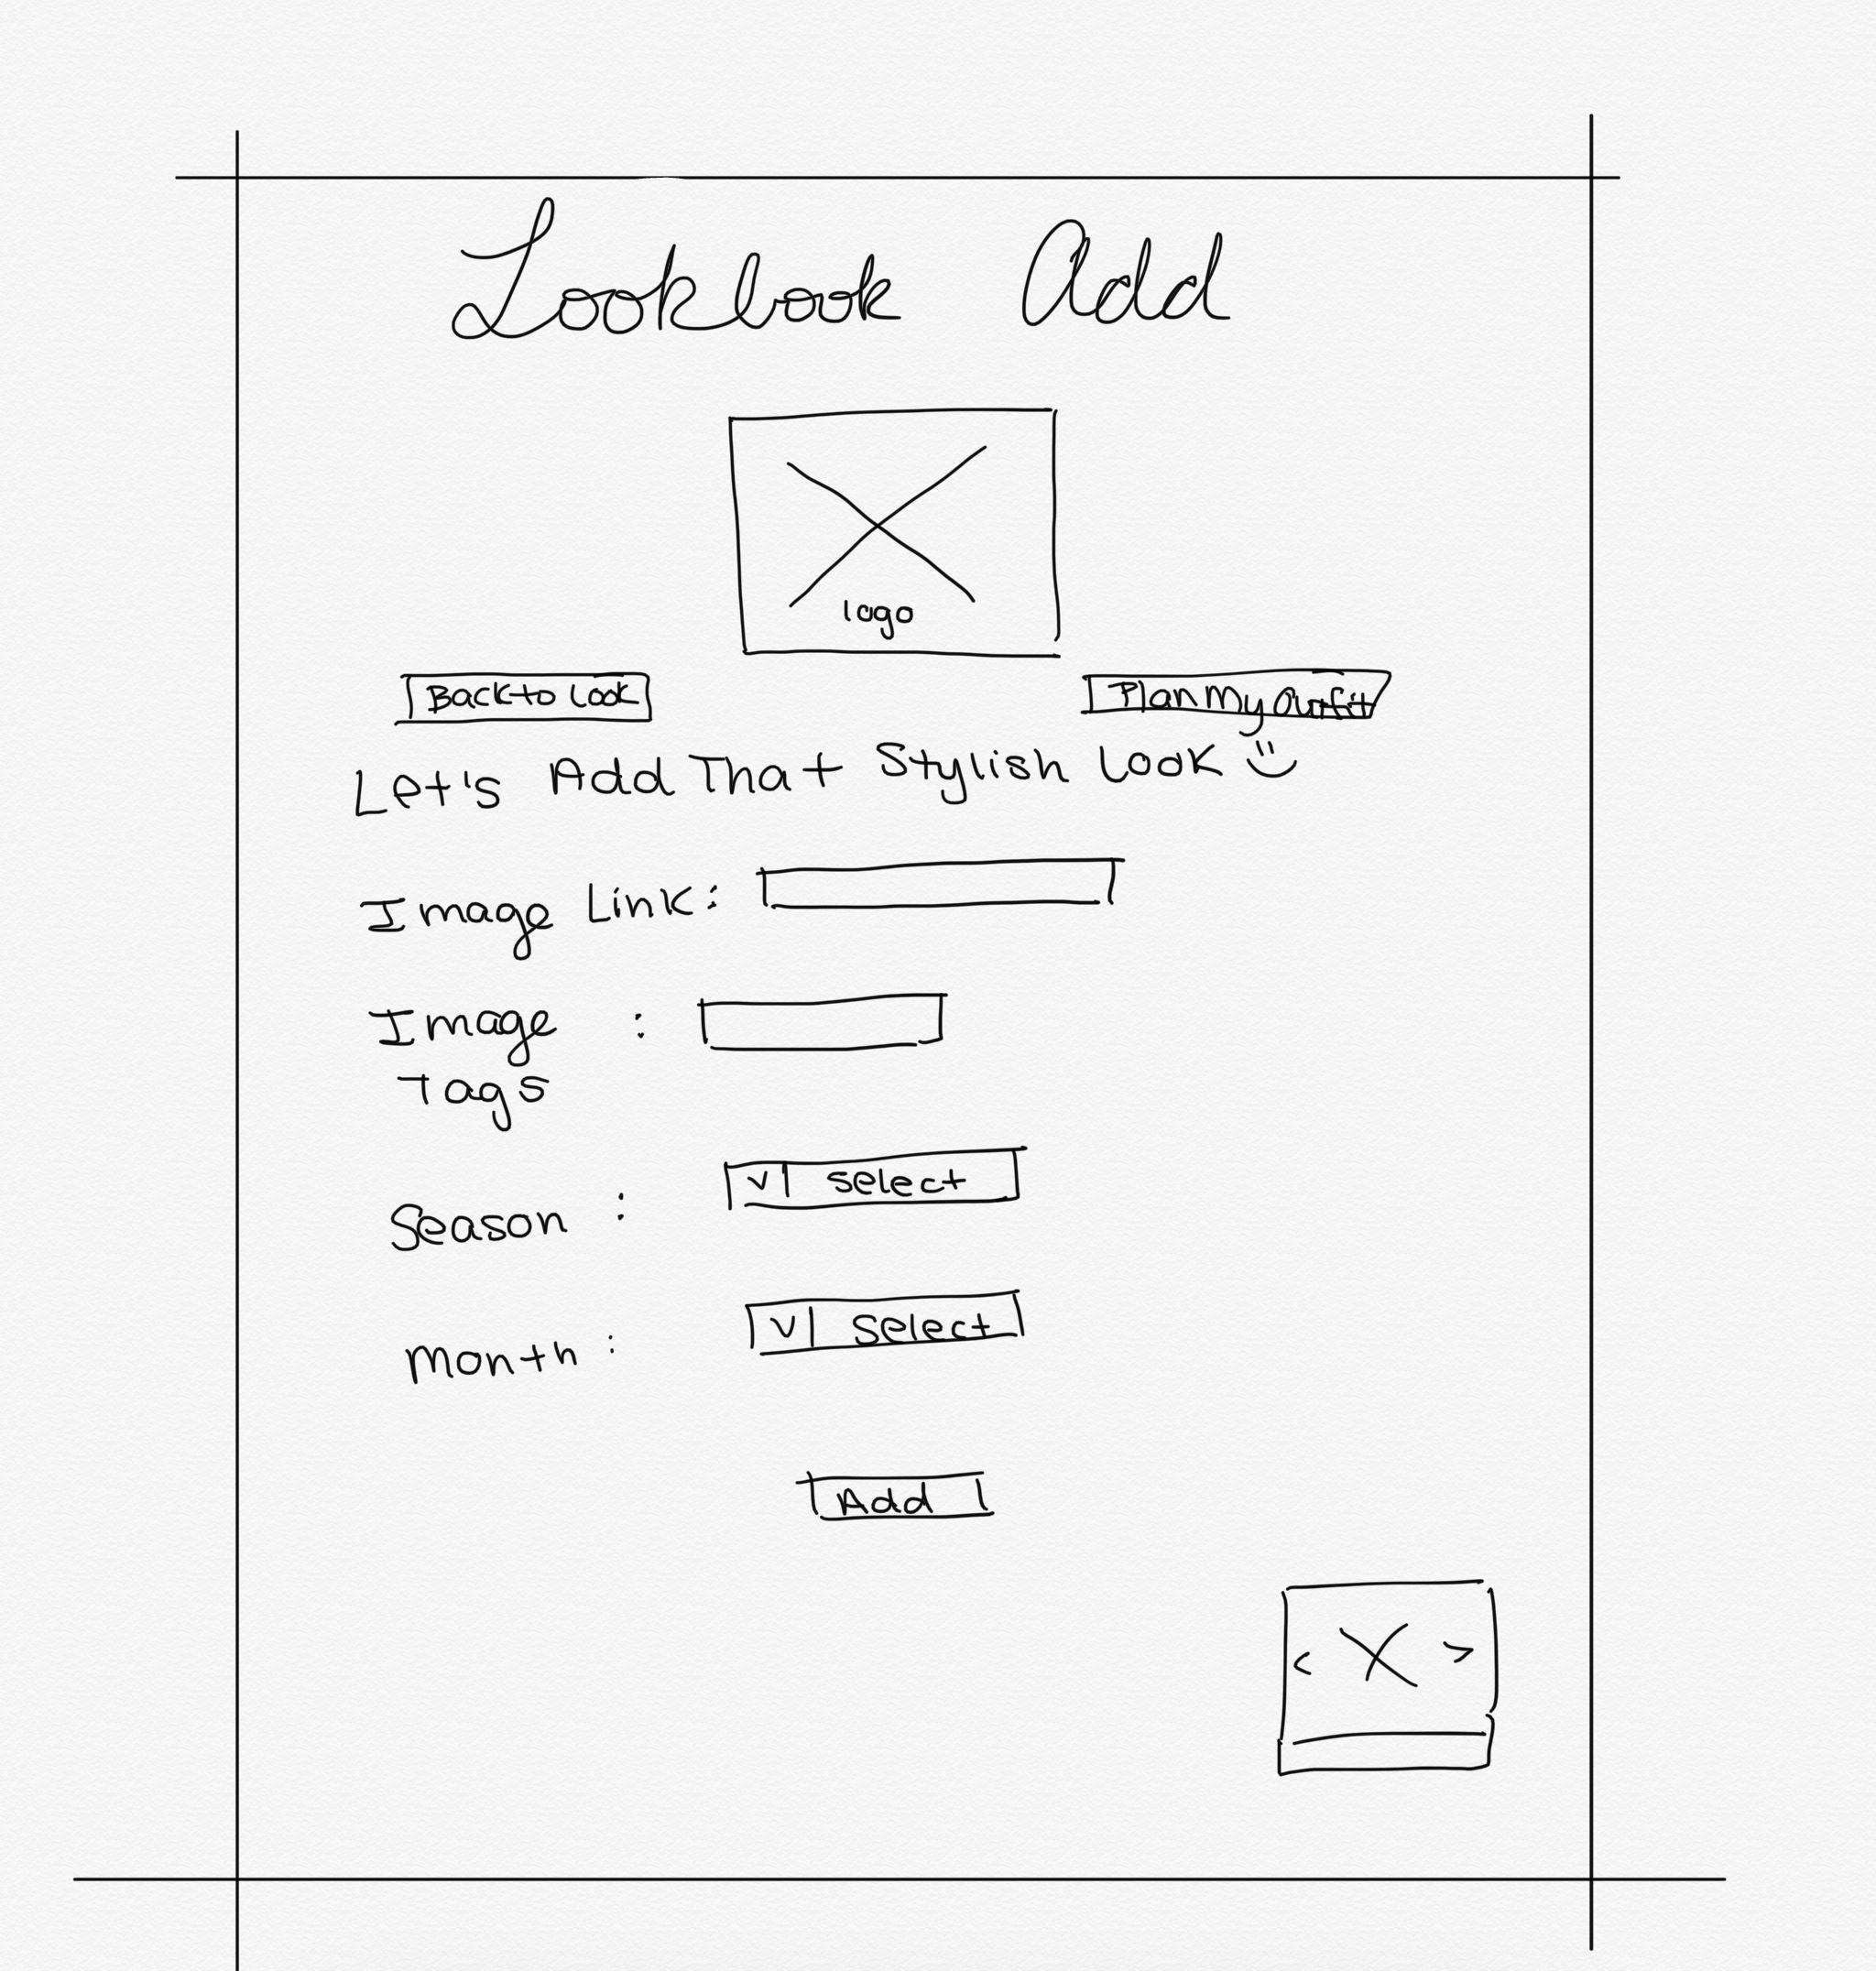 Lookbook Add
logo
Back to Look
Plan My Outfit
Let's Add That Stylish Look
Image Link:
Image :
Tags
Season :
V Select
Month :
V Select
Add
< X >